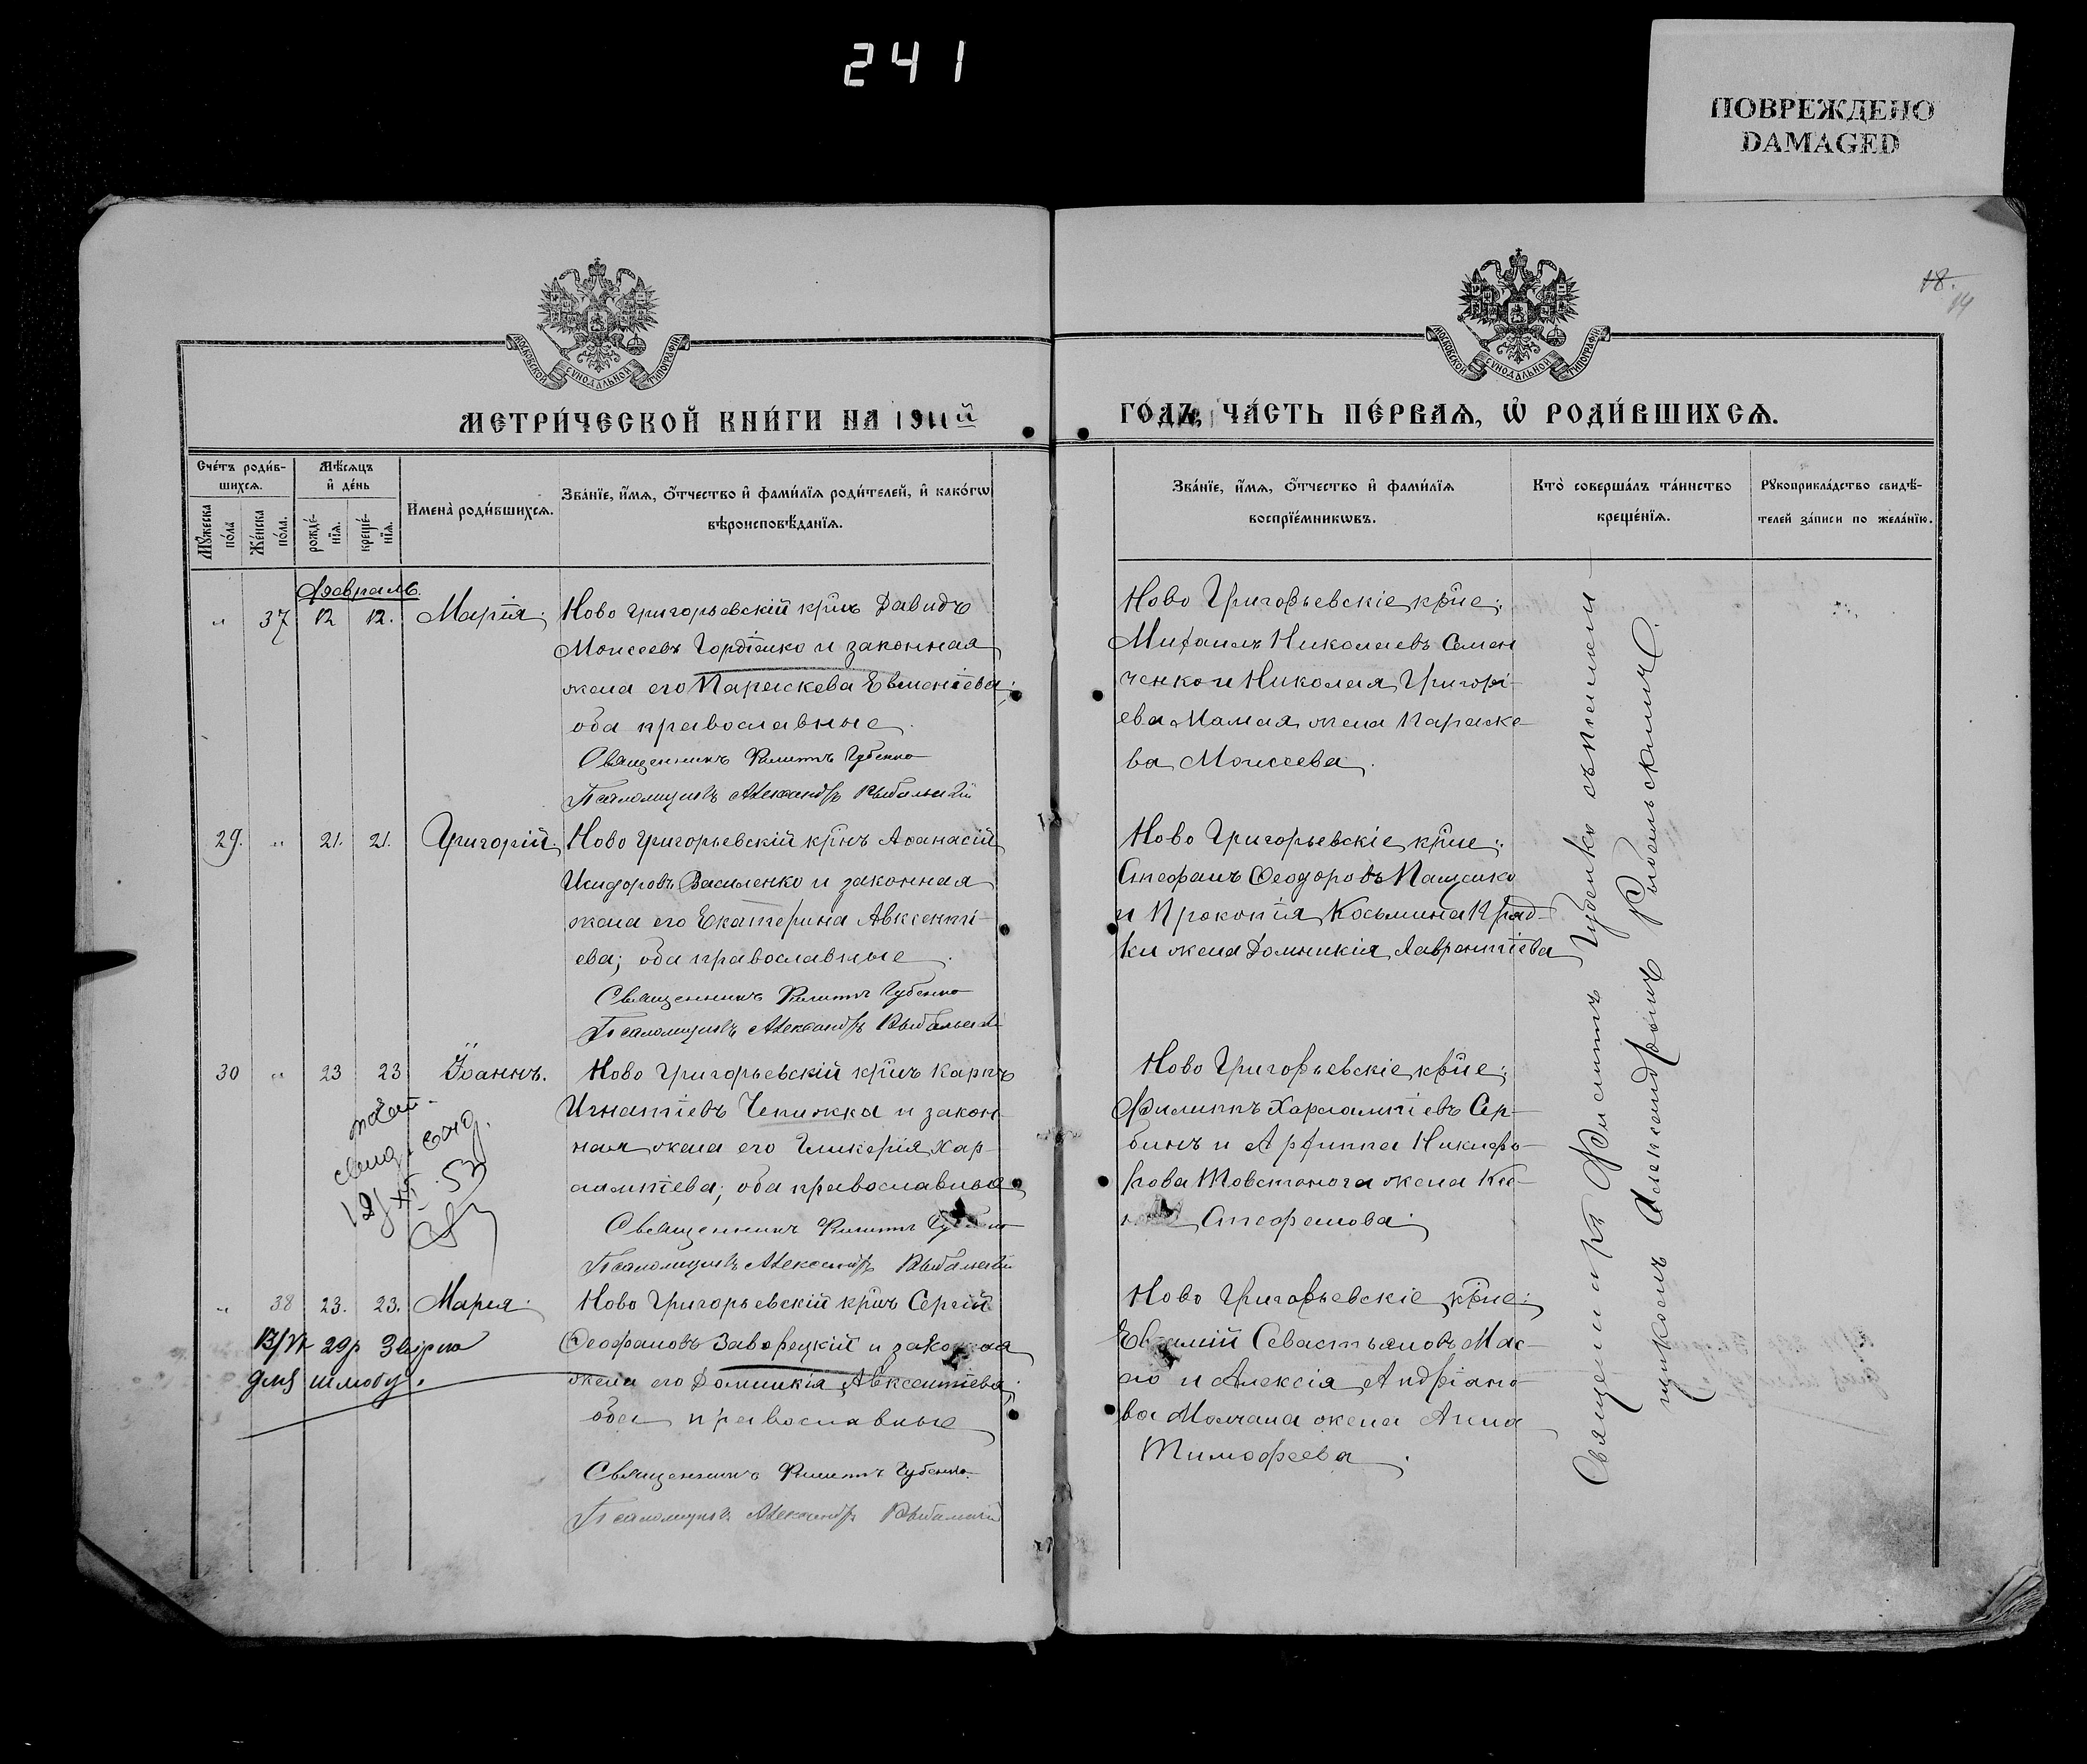 241
ПОВРЕЖДЕНО
DAMAGED
18.
14
МОСКОВСКОЙ СѴНОДАЛЬНОЙ ТИПОГРАФІИ
МОСКОВСКОЙ СѴНОДАЛЬНОЙ ТИПОГРАФІИ
МЕТРИ́ЧЕСКОЙ КНИ́ГИ НА 1911й
ГО́ДЪ, ЧА́СТЬ ПЕ́РВАѦ, Ѡ҆ РОДИ́ВШИХСѦ.
Сче́тъ роди́в-
шихсѧ.
Мѣ́сѧцъ
и҆ де́нь
Мꙋ́жеска по́ла
Же́нска по́ла.
рожде́-
нїѧ.
креще́-
нїѧ.
И҆мена̀ роди́вшихсѧ.
Зва́нїе, и҆́мѧ, ѻ҆́тчество и҆ фами́лїѧ роди́телей, и҆ како́гѡ
вѣроисповѣ́данїѧ.
Зва́нїе, и҆́мѧ, ѻ҆́тчество и҆ фами́лїѧ
воспрїе́мникѡвъ.
Кто̀ соверша́лъ та́инство
креще́нїѧ.
Рꙋкоприкла́дство свидѣ́-
телей за́писи по жела́нїю.
Февраль.
" 37 12 12. Марія.
Ново Григорьевскій кр-нъ Давидъ
Моисеевъ Гордіенко и законная
жена его Параскева Евменіева;
оба православные.
Священникъ Филиппъ Губенко
Псаломщикъ Александръ Рыбальскій
Ново Григорьевскіе кр-не:
Михаилъ Николаевъ Семен
ченко и Николая Григорі-
ева Мамая жена Параске
ва Моисеева.
29. " 21. 21. Григорій.
Ново Григорьевскій кр-нъ Аѳанасій
Исидоровъ Василенко и законная
жена его Екатерина Авксенті-
ева; оба православные.
Священникъ Филиппъ Губенко
Псаломщикъ Александръ Рыбальскій
Ново Григорьевскіе кр-не:
Стефанъ Ѳеодоровъ Пащенко
и Прокопія Косьмина Крад-
ки жена Домникія Лаврентіева
30 " 23 23 Іоаннъ.
Ново Григорьевскій кр-нъ Карпъ
Игнатіевъ Чепижка и закон-
ная жена его Гликерія Хар-
лампіева; оба православные
Священникъ Филиппъ Губенко
Псаломщикъ Александръ Рыбальскій
Ново Григорьевскіе кр-не:
Филиппъ Харлампіевъ Сер-
бинъ и Агрипа Никифо-
рова Товстонога жена
Стефанова.
12/XI 53
" 38 23. 23. Марія.
Ново Григорьевскій кр-нъ Сергій
Ѳеофановъ Заворецкій и законная
жена его Домникія Авксентіева;
оба православные
Священникъ Филиппъ Губенко.
Псаломщикъ Александръ Рыбальскій
29р Звірно
для шлюбу.
Ново Григорьевскіе кр-не:
Евфимій Севастьяновъ Мас-
ло и Алексія Андріано-
ва Молчана жена Анна
Тимофеева.
Священникъ Филиппъ Губенко съ псалом-
щикомъ Александромъ Рыбальскимъ.